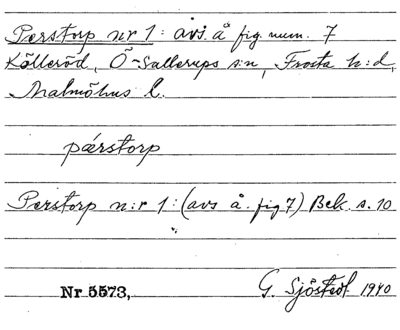 Perstorp nr 1: avs. å fig. num. 7
Kölleröd, Ö-Sallerups s:n, Frosta h:d,
Malmöhus l.
pǽrstorp
Perstorp n:r 1: (avs å. fig 7) Bek. s. 10
Nr 5573, G. Sjöstedt 1940